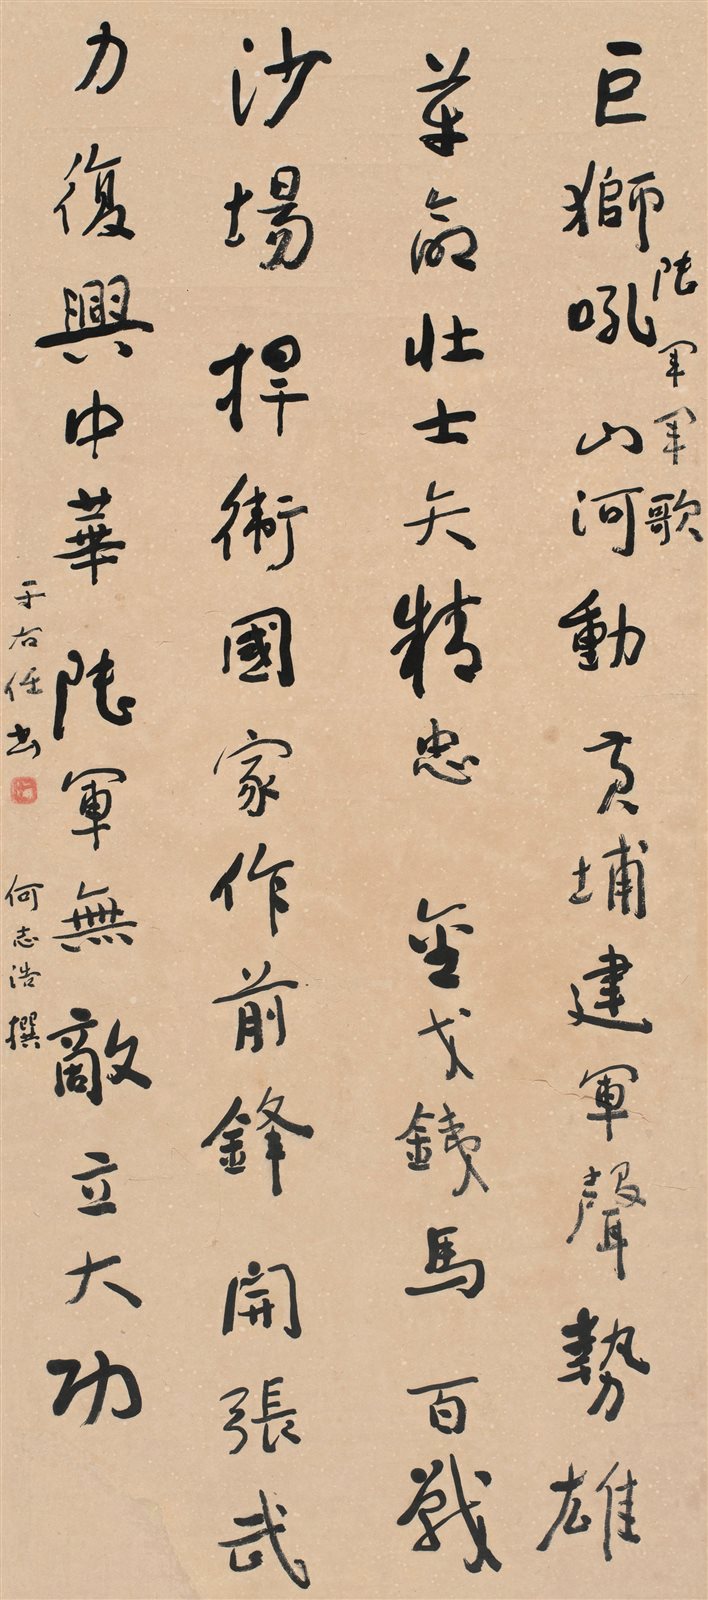 陸軍軍歌
巨獅吼山河動黃埔建軍聲勢雄
革命壯士矢精忠金戈鐵馬百戰
沙場捍衛國家作前鋒開張武
力復興中華陸軍無敵立大功
于右任書
何志浩撰